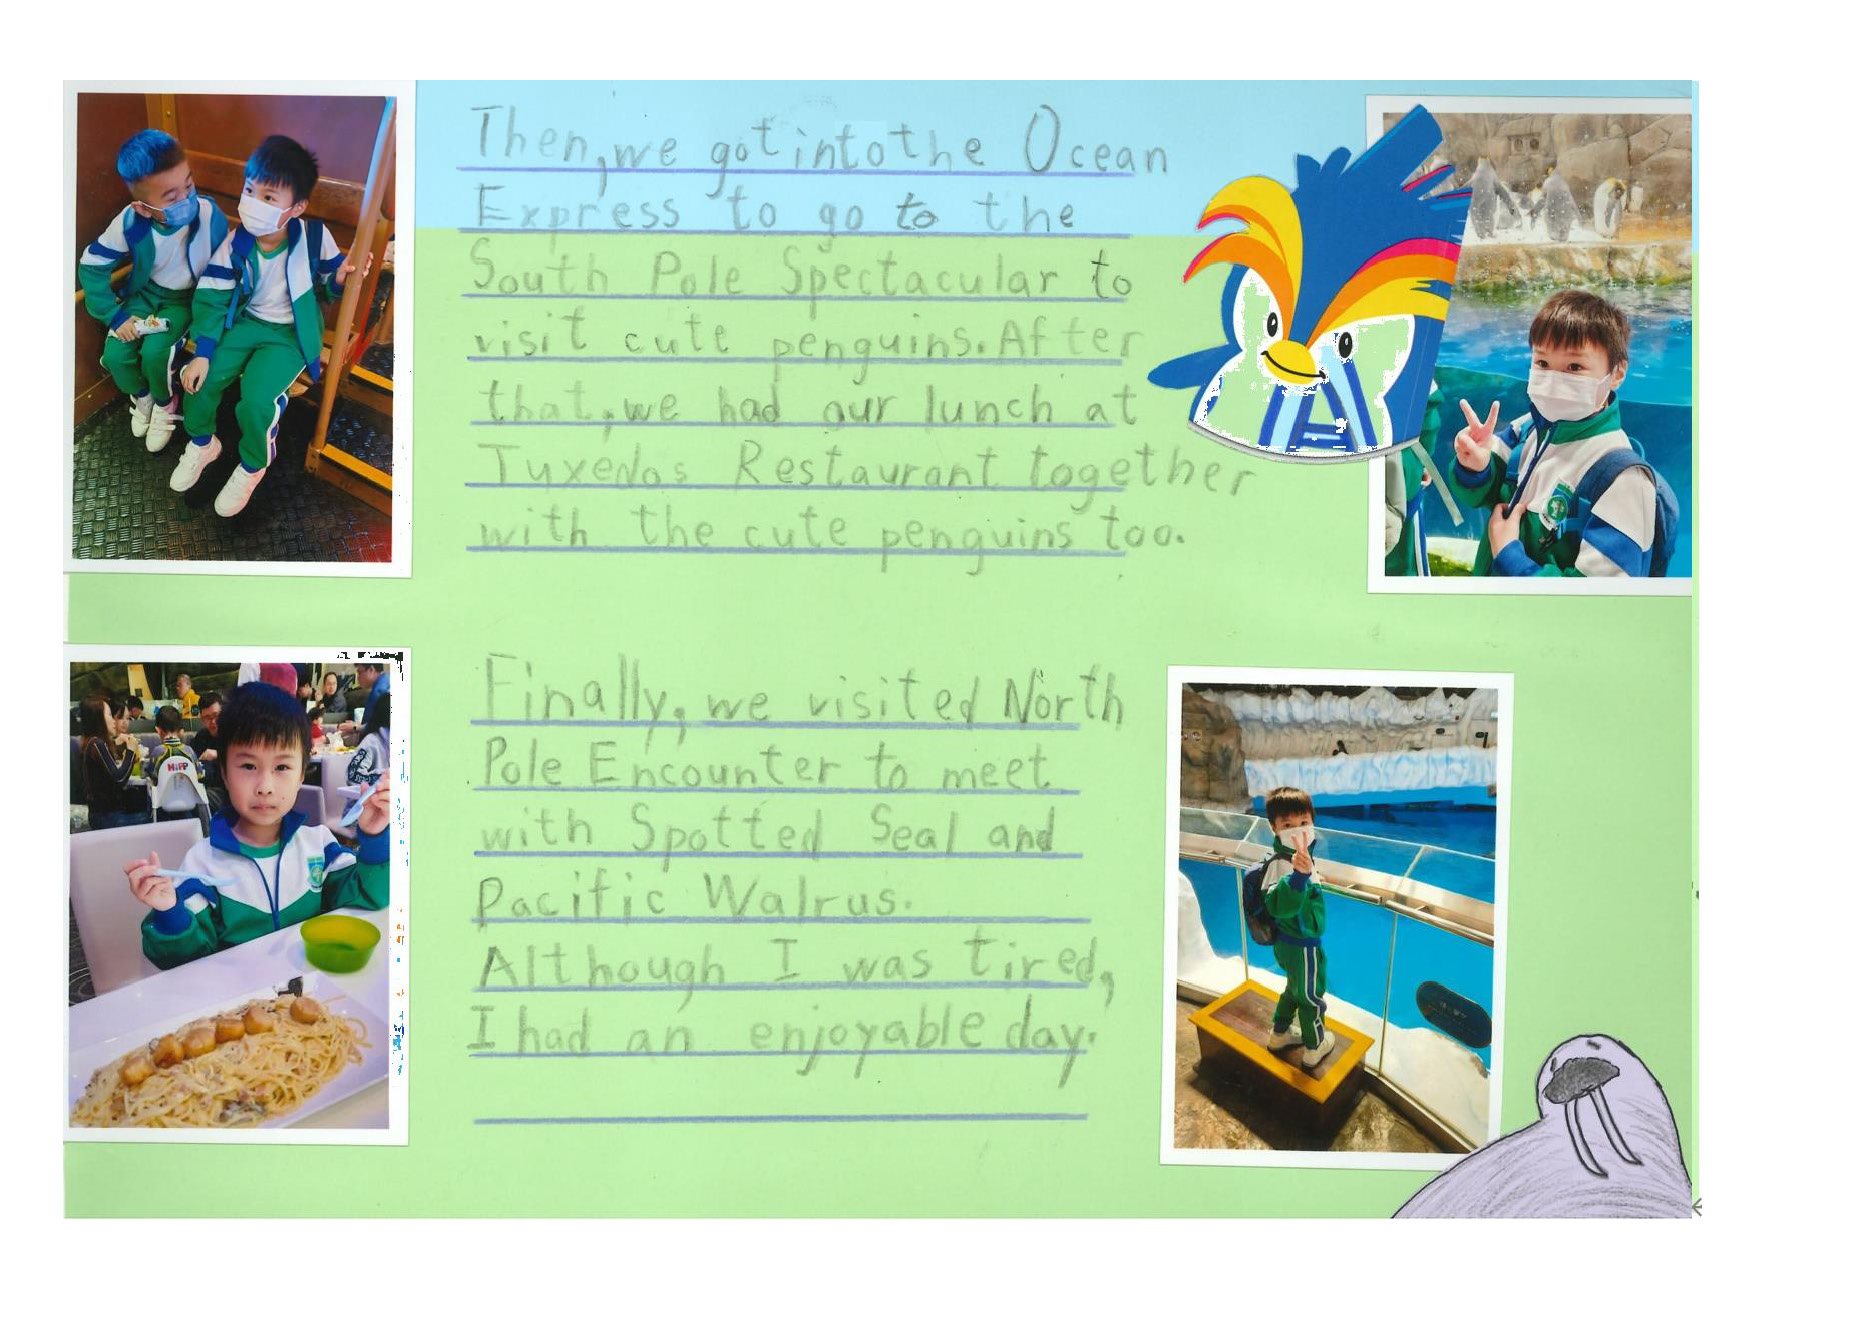 Then, we got into the Ocean
Express to go to the
South Pole Spectacular to
visit cute penguins. After
that, we had our lunch at
Tuxedos Restaurant together
with the cute penguins too.
Finally, we visited North
Pole Encounter to meet
with Spotted Seal and
Pacific Walrus.
Although I was tired,
I had an enjoyable day.
HiPP